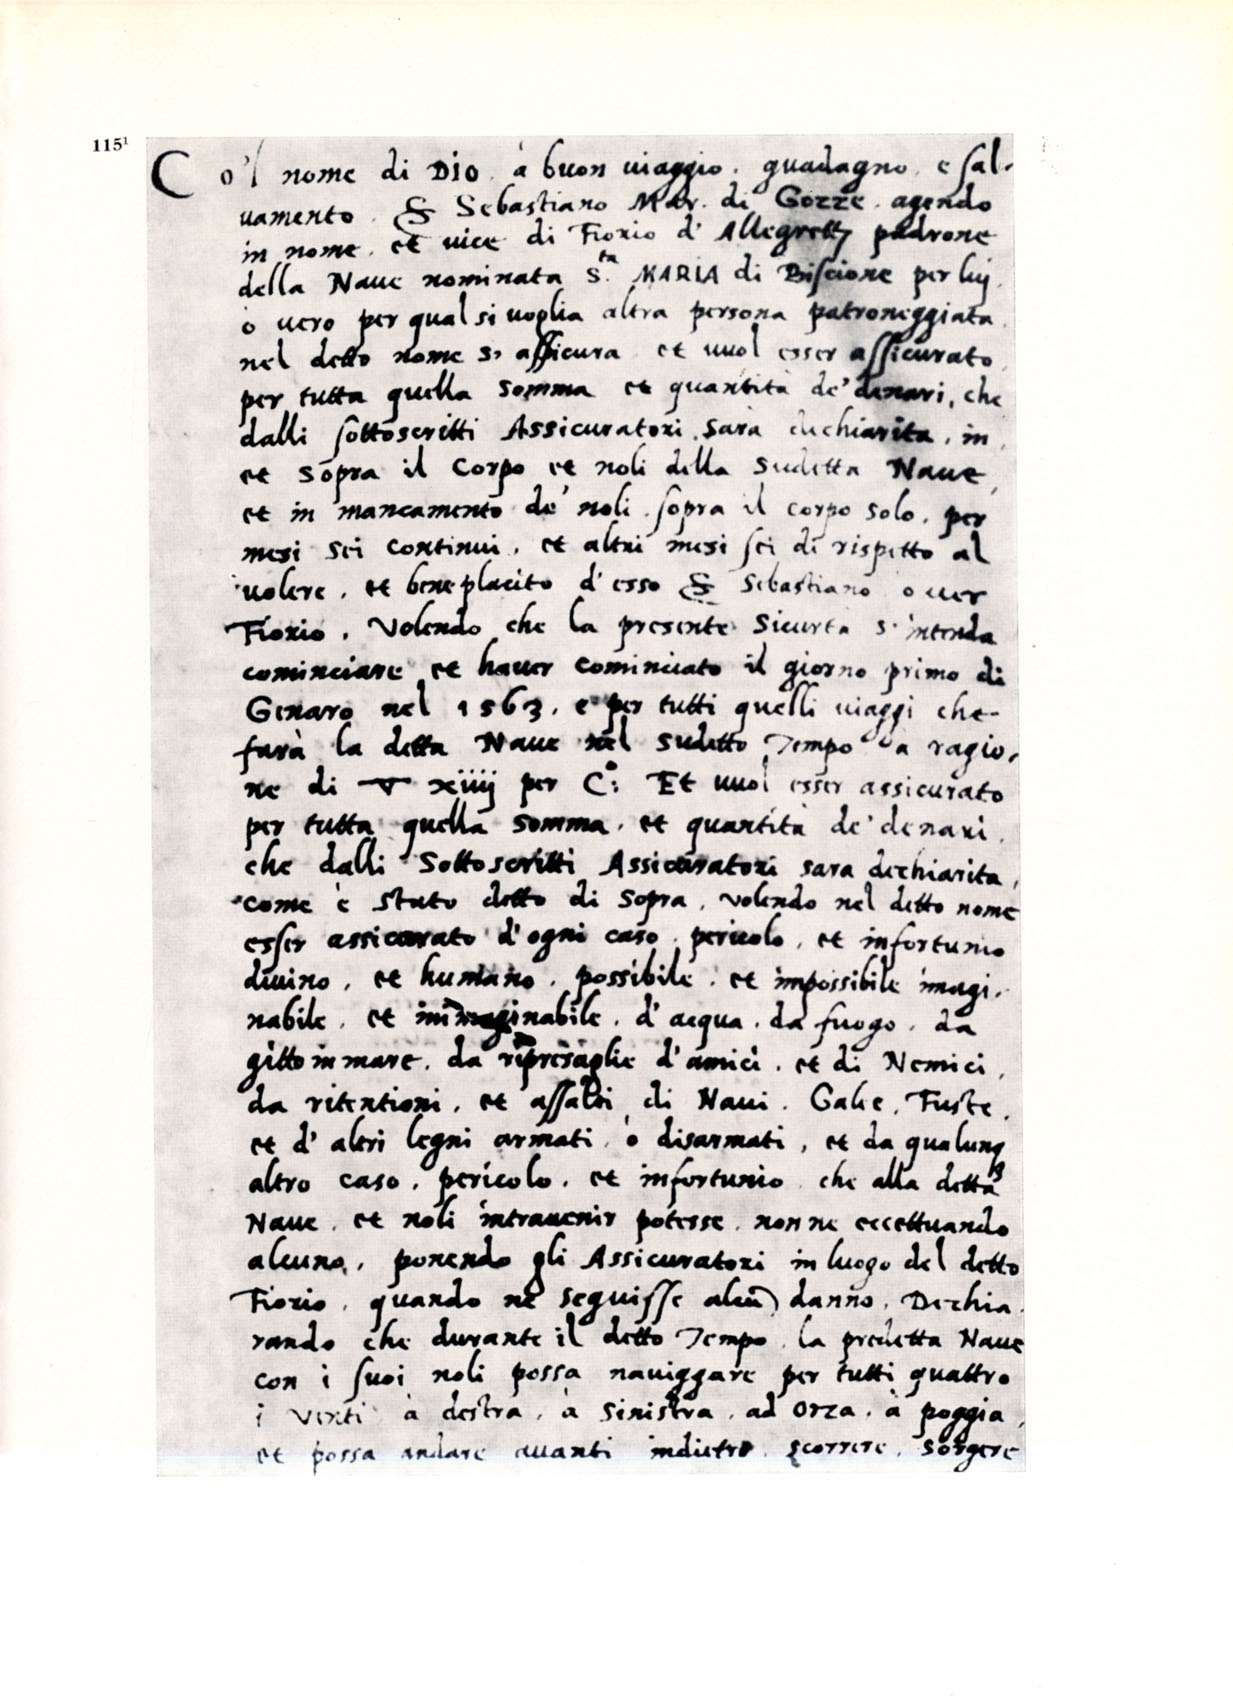 115¹
Co'l nome di DIO. à buon uiaggio. guadagno. e sal-
uamento. & Sebastiano Mar. di Gozze. agendo
in nome. et uice di Fiorio d' Allegretti padrone
della Naue nominata S.ta MARIA di Biscione per luj.
ò uero per qual si uoglia altra persona patroneggiata.
nel detto nome s' assicura et uuol esser assicurato
per tutta quella somma et quantità de' denari, che
dalli sottoscritti Assicuratori sarà dechiarita, in,
et sopra il Corpo et noli della sudetta Naue,
et in mancamento de' noli. sopra il corpo solo. per
mesi sei continui. et altri mesi sei di rispetto al
uolere. et beneplacito d' esso & Sebastiano o uer
Fiorio. Volendo che la presente Sicurtà s' intenda
cominciare et hauer cominciato il giorno primo di
Genaro nel 1563. e per tutti quelli uiaggi che
farà la detta Naue nel sudetto Tempo à ragio-
ne di xiiij per C.o: Et uuol esser assicurato
per tutta quella somma. et quantità de' denari.
che dalli Sottoscritti Assicuratori sara dechiarita,
come è stato detto di sopra. volendo nel detto nome
esser assicurato d' ogni caso. pericolo. et infortunio
diuino. et humano. possibile. et impossibile imagi-
nabile. et immaginabile. d' acqua. da fuogo. da
gitto in mare. da ripresaglie d' amici. et di Nemici,
da ritentioni. et assalti di Naui. Galie. Fuste.
et d' altri legni armati. ò disarmati, et da qualunq3
altro caso. pericolo. et infortunio che alla detta
Naue. et noli intrauenir potesse. non ne eccettuando
alcuno. ponendo gli Assicuratori in luogo del detto
Fiorio. quando ne seguisse alcū danno. Dechia-
rando che durante il detto Tempo. la predetta Naue
con i suoi noli possa nauiggare per tutti quattro
i Venti à destra. à sinistra. ad orza. à poggia,
et possa andare auanti indietro. scorrere. sorgere